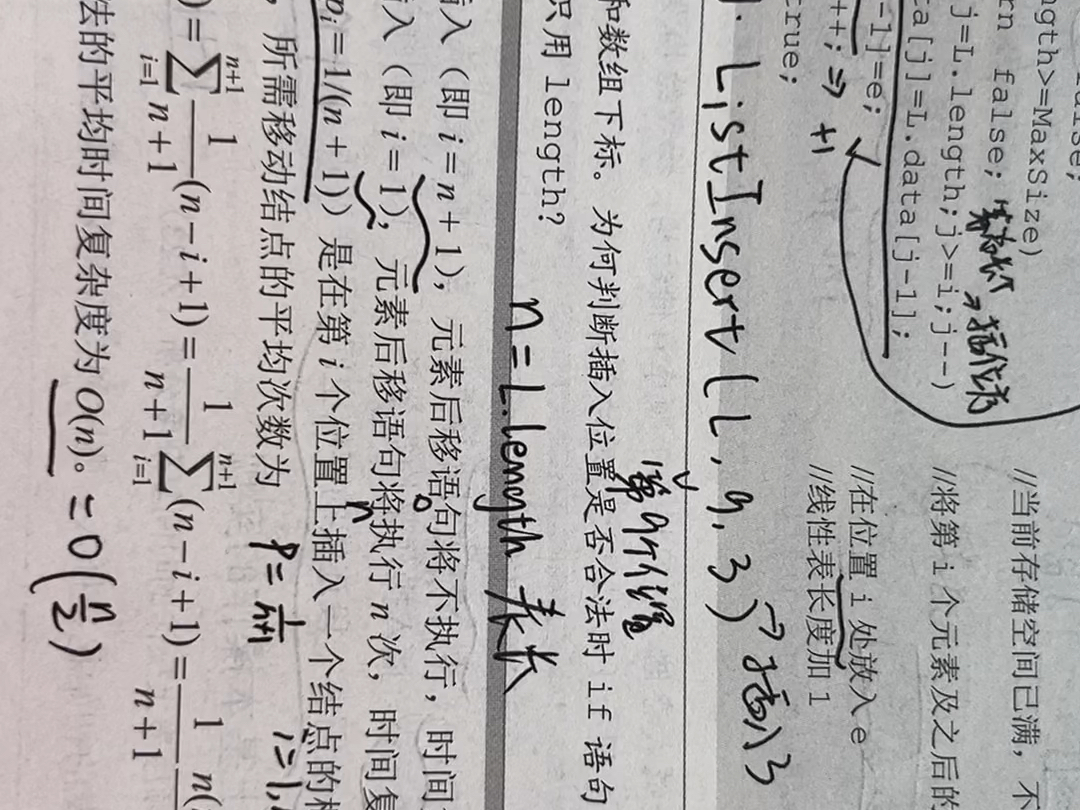 ngth>=MaxSize) //当前存储空间已满，不
rn false;
j=L.length;j>=i;j--) //将第 i 个元素及之后的
a[j]=L.data[j-1]; 插位济
-1]=e; //在位置 i 处放入 e
++; ⇒ +1 //线性表长度加 1
true;
ListInsert(L, 9, 3) 插入3
第9个位置
和数组下标。为何判断插入位置是否合法时 if 语句
只用 length?
n=L.length 表长
插入（即 i=n+1），元素后移语句将不执行，时间
0
入（即 i=1），元素后移语句将执行 n 次，时间复
n
pᵢ=1/(n+1)）是在第 i 个位置上插入一个结点的概
，所需移动结点的平均次数为 P=1/(n+1) i=1,
)=∑_{i=1}^{n+1} 1/(n+1) (n-i+1)=1/(n+1) ∑_{i=1}^{n+1} (n-i+1)=1/(n+1) n(
法的平均时间复杂度为 O(n)。=O(n/2)